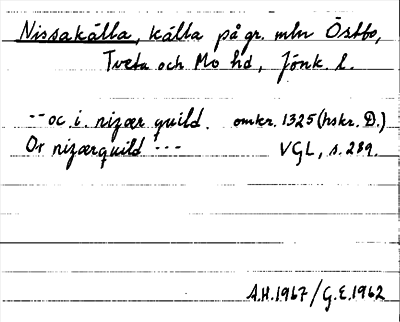 Nissakälla, källa på gr. mln Östbo,
Tveta och Mo hd, Jönk. l.
-- oc. i. nizær quild. omkr. 1325 (hskr. D.)
Or nizærquild --- VGL, s. 289.
A.H. 1967 / G.E. 1962